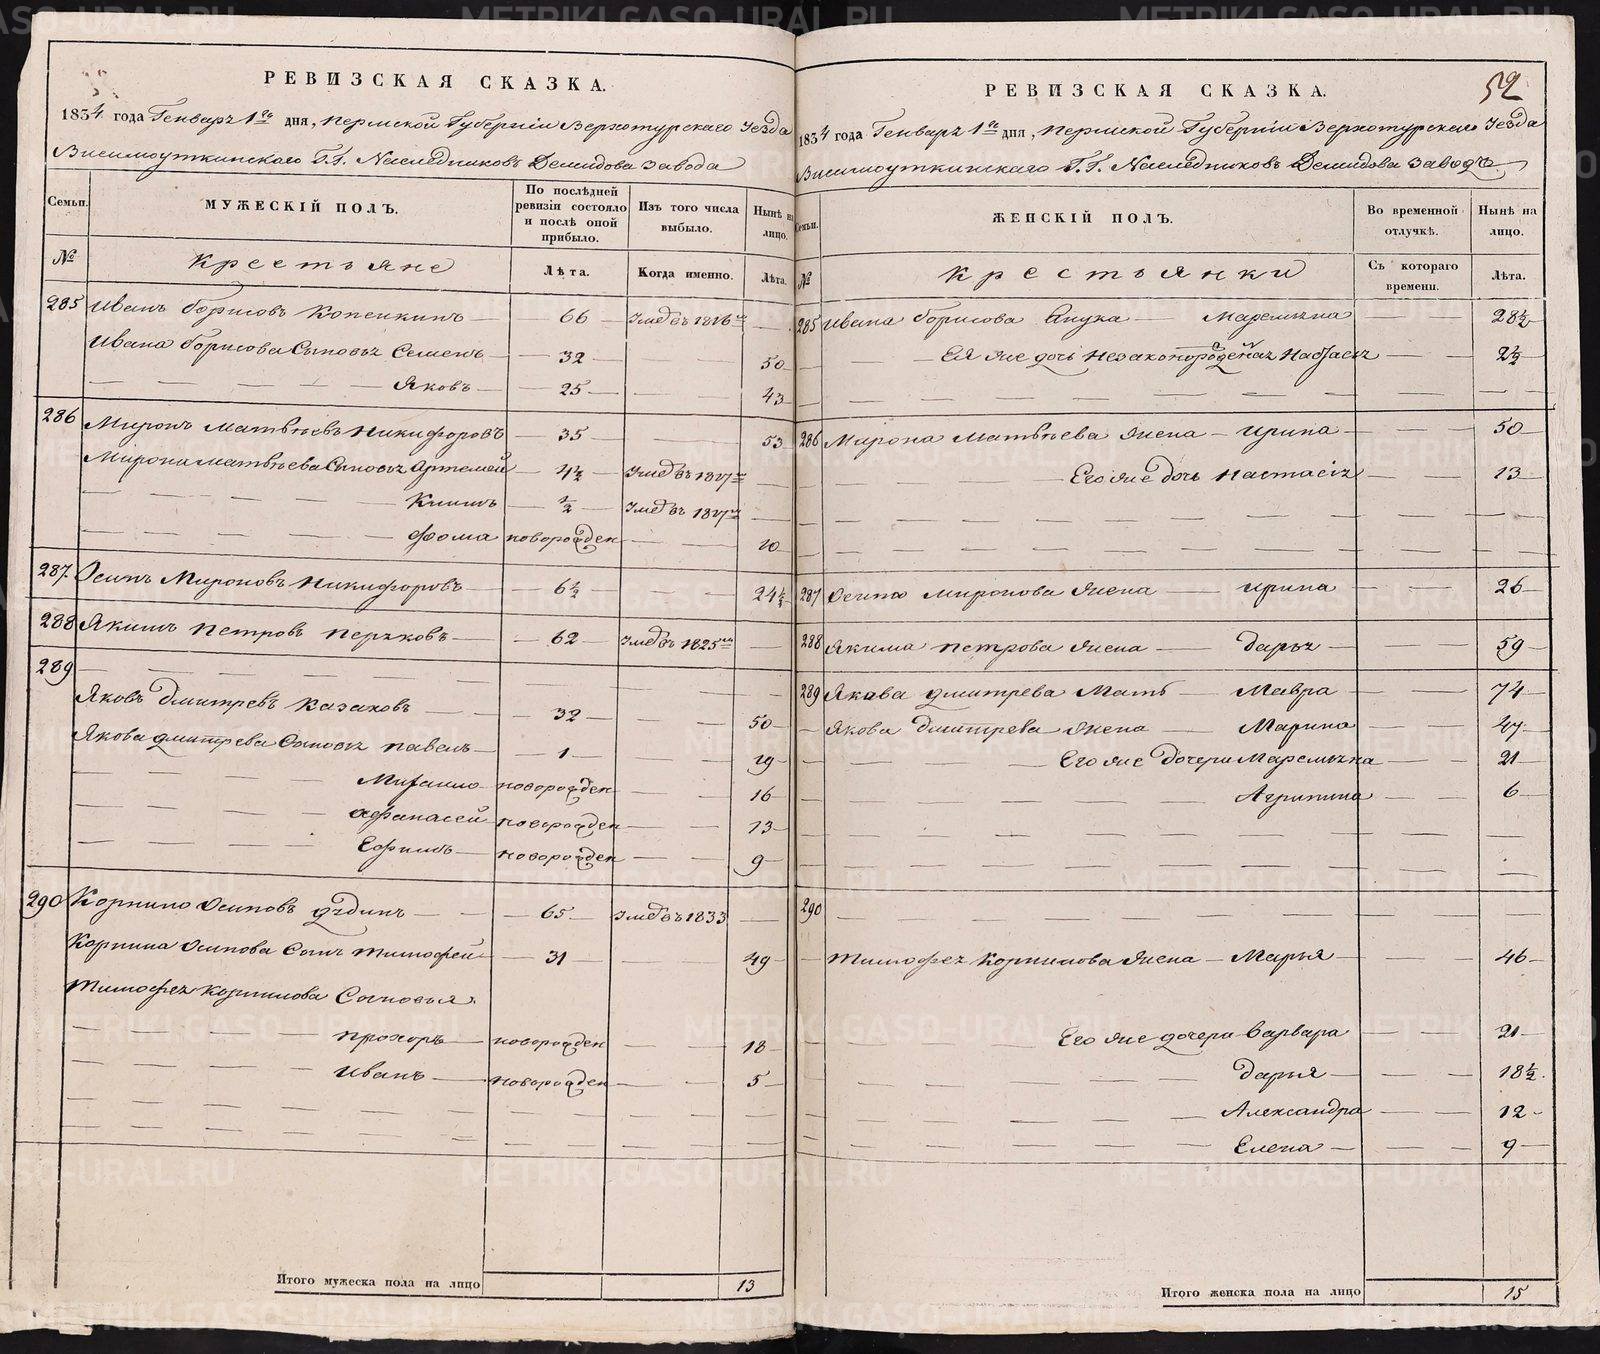 РЕВИЗСКАЯ СКАЗКА.
1834 года Генваря 1го дня, Пермской Губернiи Верхотурскаго Уезда
Висимоуткинскаго Г.Г. Наследниковъ Демидова завода
Семьи.
МУЖЕСКIЙ ПОЛЪ.
По послѣдней ревизiи состояло и послѣ оной прибыло.
Изъ того числа выбыло.
Нынѣ на лицо.
№
Крестьяне
Лѣта.
Когда именно.
Лѣта.
285 Иванъ Борисовъ 66 Умеръ 1826
Ивана Борисова Сыновья Семенъ 32 50
Яковъ 25 43
286 Миронъ Матвѣевъ Никифоровъ 35 53
Мирона Матвѣева Сыновья Артемей 4½ Умеръ 1827
Климъ ½ Умеръ 1827
Фома новорожден 10
287. Осипъ Мироновъ Никифоровъ 6½ 24½
288 Якимъ Петровъ 62 Умеръ 1825
289
Яковъ Дмитревъ Казаковъ 32 50
Якова Дмитрева Сыновья Павелъ 1 19
Михаило новорожден 16
Афанасей новорожден 13
Ефимъ новорожден 9
290 Корнило Осиповъ 65 Умеръ 1833
Корнила Осипова Сынъ Тимофей 31 49
Тимофея Корнилова Сыновья
Прохоръ новорожден 18
Иванъ новорожден 5
Итого мужеска пола на лицо 13
52
РЕВИЗСКАЯ СКАЗКА.
1834 года Генваря 1го дня, Пермской Губернiи Верхотурскаго Уезда
Висимоуткинскаго Г.Г. Наследниковъ Демидова завода
Семьи.
ЖЕНСКIЙ ПОЛЪ.
Во временной отлучкѣ.
Нынѣ на лицо.
№
Крестьянки
Съ котораго времени.
Лѣта.
285 Ивана Борисова Внука Маремьяна 28½
Ея же дочь Незаконорожденая 2½
286 Мирона Матвѣева жена Ирина 50
Его же дочь Настасiя 13
287 Осипа Миронова жена Ирина 26
288 Якима Петрова жена Дарья 59
289 Якова Дмитрева Мать Мавра 74
Якова Дмитрева жена Марина 47
Его же Дочери Маремьяна 21
Агрипина 6
290
Тимофея Корнилова жена Марья 46
Его же дочери Варвара 21
Дарья 18½
Александра 12
Елена 9
Итого женска пола на лицо 15
METRIKI.GASO-URAL.RU